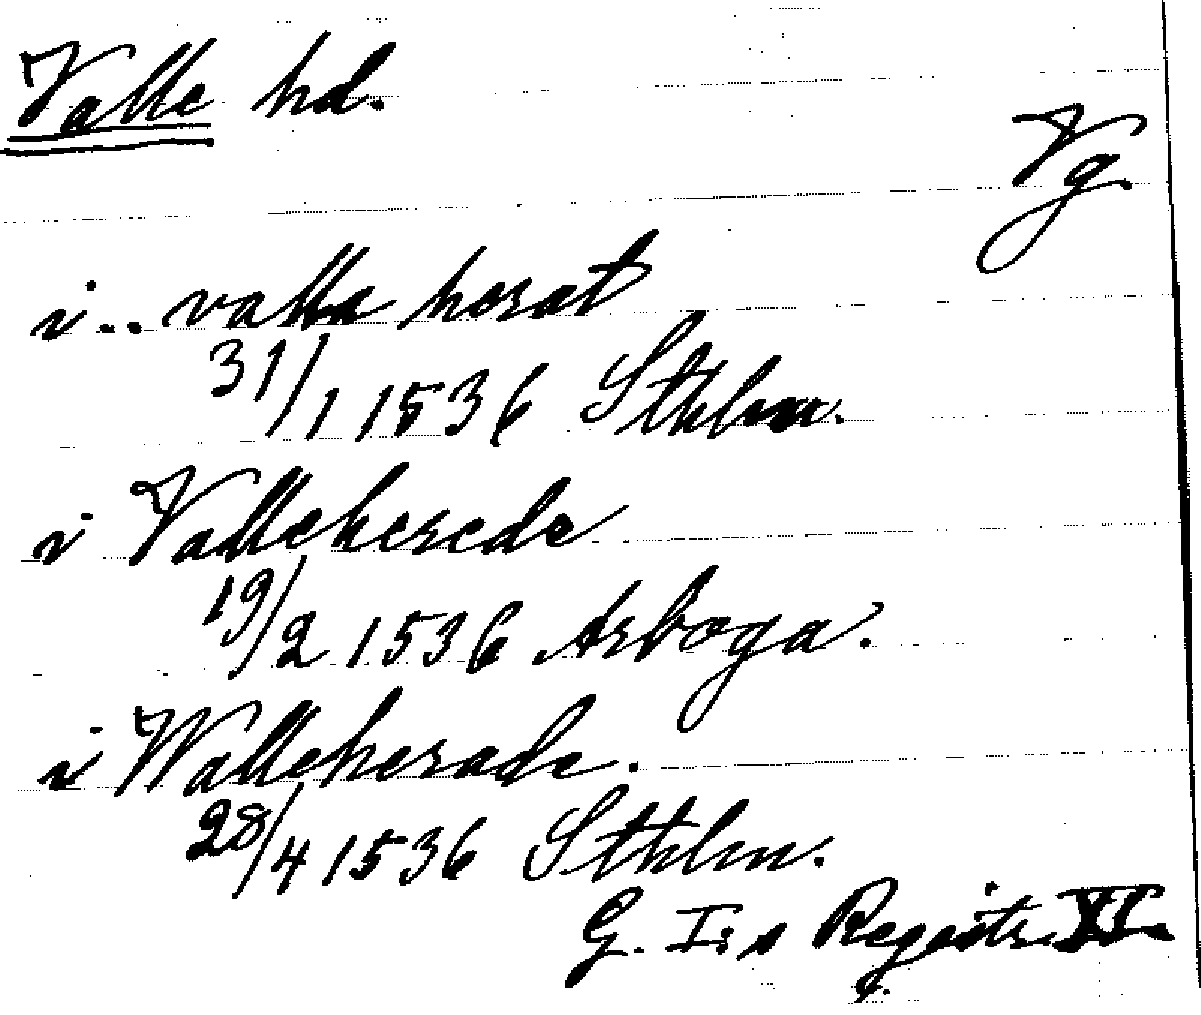 Valle hd.
Vg.
i .. valla herat
31/1 1536 Sthlm.
i Valleherede
19/2 1536 Arboga.
i Walleherade.
28/4 1536 Sthlm.
G. I:s Registr. XI.